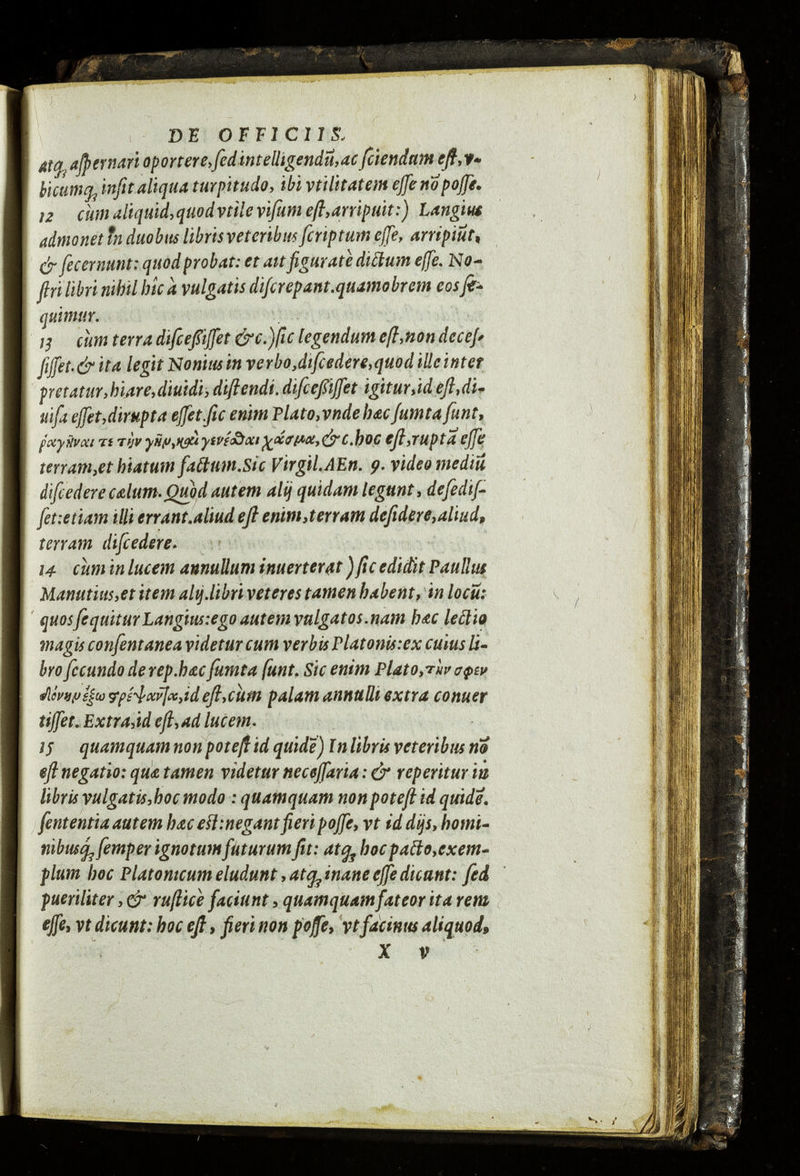 DE OFFICIIS.
atq; aſpernari oportere, ſed intelligendū, ac ſciendum eſt, v-
bicumq; inſit aliqua turpitudo, ibi vtilitatem eſſe nō poſſe.
12 cùm aliquid, quod vtile viſum eſt, arripuit:) Langius
admonet in duobus libris veteribus ſcriptum eſſe, arripiūt,
& ſecernunt: quod probat: et ait figuratè dictum eſſe. No-
ſtri libri nihil hîc à vulgatis diſcrepant. quamobrem eos ſe-
quimur.
13 cùm terra diſceßiſſet &c.) ſic legendum eſt, non deceſ-
ſiſſet. & ita legit Nonius in verbo, diſcedere, quod ille inter
pretatur, hiare, diuidi, diſtendi. diſceßiſſet igitur, id eſt, di-
uiſa eſſet, dirupta eſſet. ſic enim Plato, vnde hæc ſumta ſunt,
ῥαγῆναί τε τὴν γῆν, καὶ γενέσθαι χάσμα, &c. hoc eſt, ruptā eſſe
terram, et hiatum factum. Sic Virgil. AEn. 9. video mediū
diſcedere cælum. Quòd autem alij quidam legunt, deſediſ-
ſet: etiam illi errant. aliud eſt enim, terram deſidere, aliud,
terram diſcedere.
14 cùm in lucem annullum inuerterat) ſic edidit Paullus
Manutius, et item alij. libri veteres tamen habent, in locū:
quos ſequitur Langius: ego autem vulgatos. nam hæc lectio
magis conſentanea videtur cum verbis Platonis: ex cuius li-
bro ſecundo de rep. hæc ſumta ſunt. Sic enim Plato, τὴν σφεν
δόνην ἔξω στρέψαντα, id eſt, cùm palam annulli extra conuer
tiſſet. Extra, id eſt, ad lucem.
15 quamquam non poteſt id quidē) In libris veteribus nō
eſt negatio: quæ tamen videtur neceſſaria: & reperitur in
libris vulgatis, hoc modo: quamquam non poteſt id quidē.
ſententia autem hæc eſt: negant fieri poſſe, vt id dijs, homi-
nibusq; ſemper ignotum futurum ſit: atq; hoc pacto, exem-
plum hoc Platonicum eludunt, atq; inane eſſe dicunt: ſed
pueriliter, & ruſticè faciunt, quamquam fateor ita rem
eſſe, vt dicunt: hoc eſt, fieri non poſſe, vt facinus aliquod,
X v